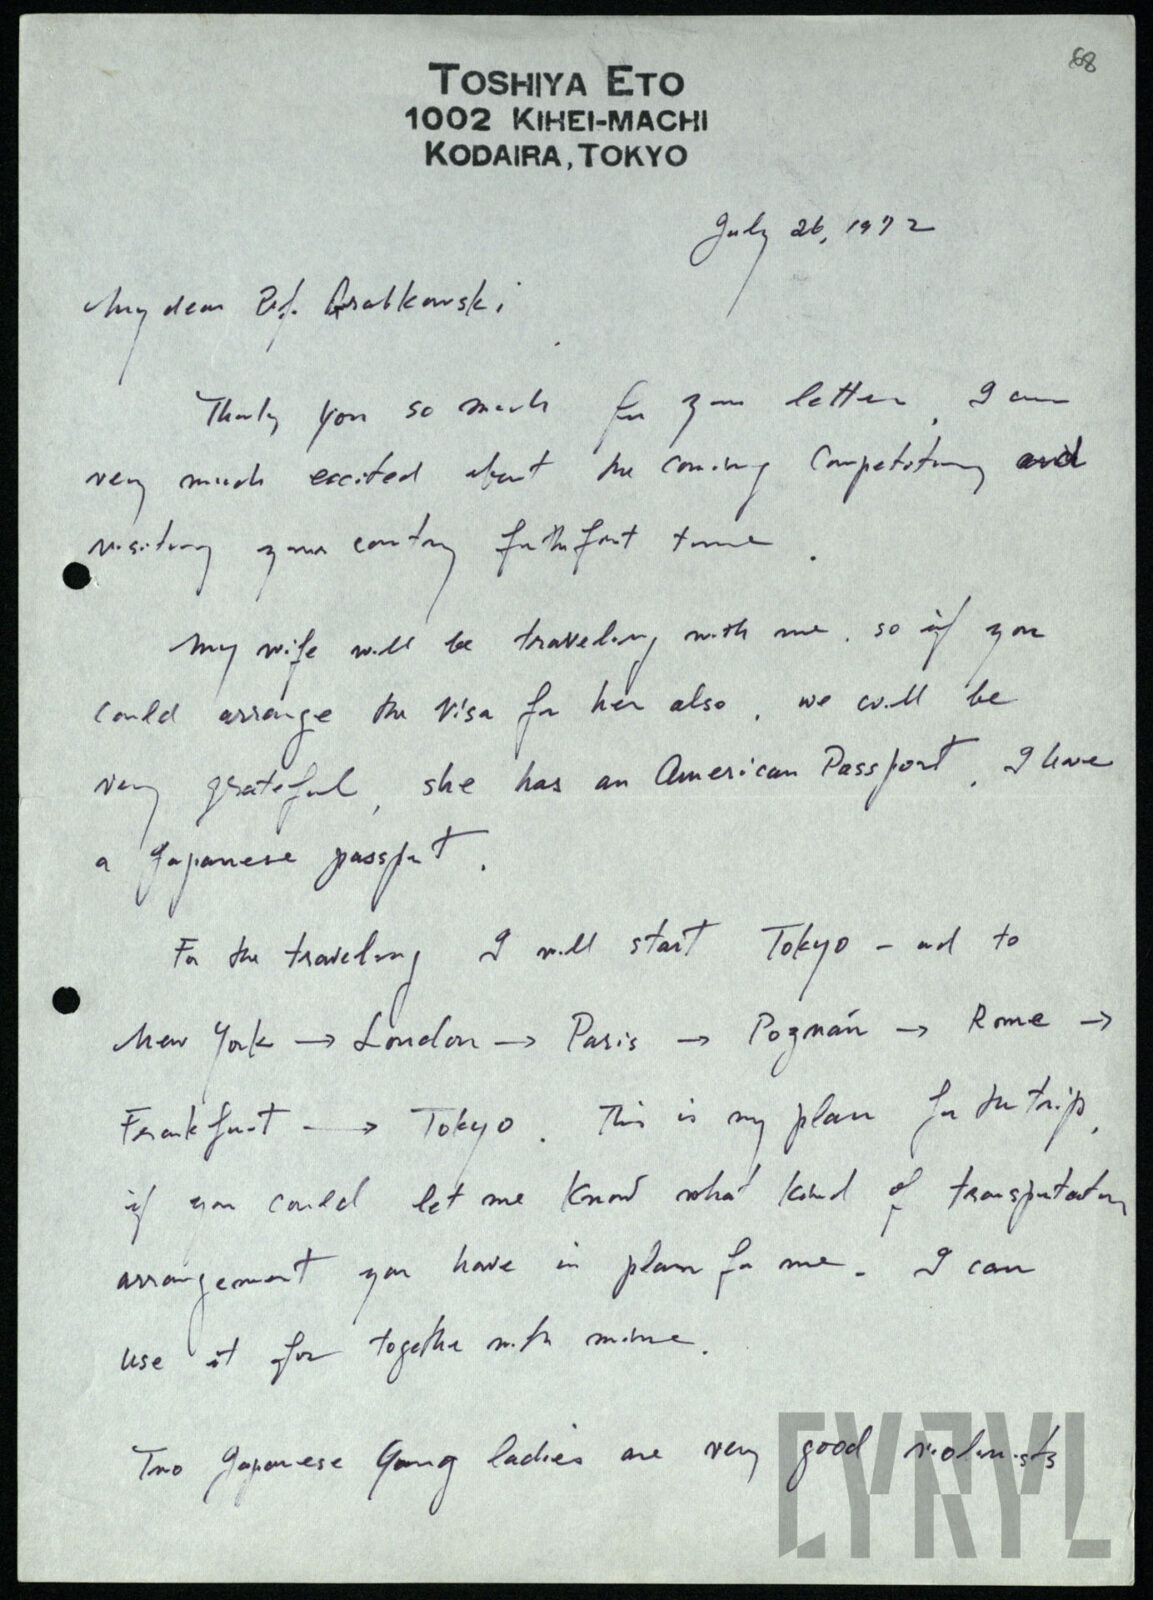 68
TOSHIYA ETO
1002 KIHEI-MACHI
KODAIRA, TOKYO
July 26, 1972
My dear Prof. Grabkowski
Thank you so much for your letter, I am
very much excited about the coming Competition and
visiting your country for the first time.
My wife will be traveling with me. so if you
could arrange the visa for her also, we will be
very grateful, she has an American Passport, I have
a Japanese passport.
For the traveling I will start Tokyo - and to
New York → London → Paris → Poznań → Rome →
Frankfurt → Tokyo. This is my plan for the trip,
if you could let me know what kind of transportation
arrangement you have in plan for me. I can
use it for together with mine.
Two Japanese Young ladies are very good violinists
CYRYL